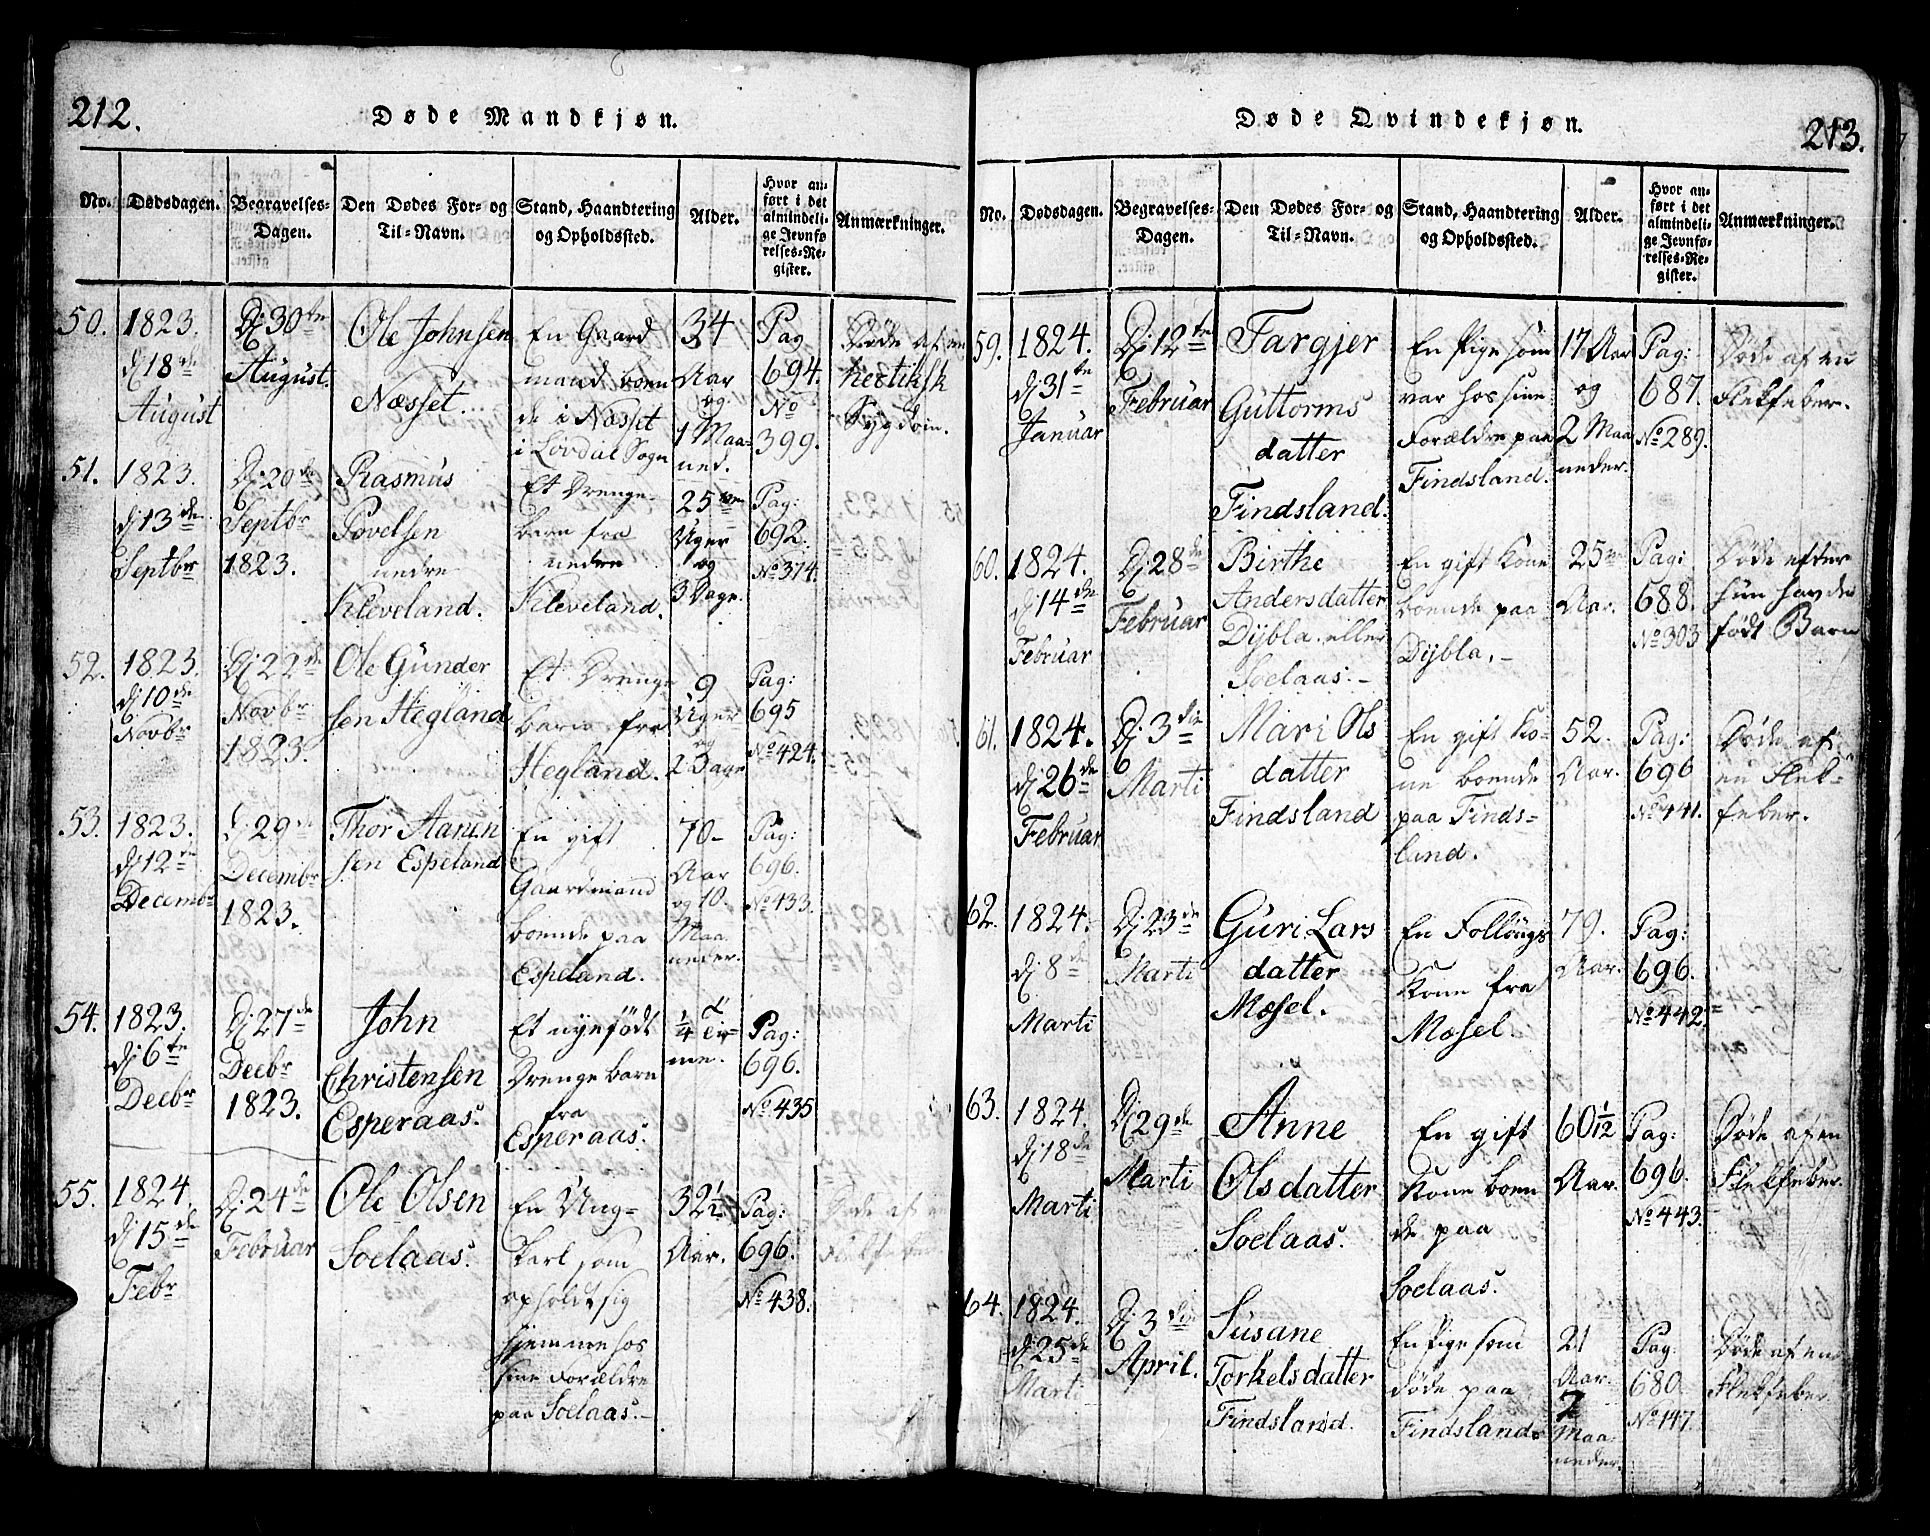 212.
Døde Mandkjøn.
No.
Dødsdagen.
Begravelses-
Dagen.
Den Dødes For- og
Til-Navn.
Stand, Haandtering
og Opholdssted.
Alder.
Hvor an-
ført i det
almindeli-
ge Jevnfø-
relses-Re-
gister.
Anmærkninger.
50.
1823.
dj 18de
August
Dj 30te
August.
Ole Johnsen
Næsset..
En Gaard
mand boen
de i Næsset
i Løvdal Sogn
34
Aar
og
1 Maa-
ned.
Pag
694.
No
399.
Døde af en
hectiksk
Sygdom.
51.
1823.
dj 13de
Septbr
Dj 20de
Septbr
1823.
Rasmus
Povelsen
nedre
Kleveland.
Et Drenge-
barn fra
nedre
Kleveland.
25
Uger
og
3 Dage.
Pag:
692.
No 374.
52.
1823.
dj 10de
Novbr
Dj 22de
Novbr
1823.
Ole Gunder
sen Hegland
Et Drenge
barn fra
Hegland.
9
Uger
og
2 Dage
Pag:
695
No 424.
53.
1823.
dj 12te
Decembr
Dj 29de
Decembr
1823.
Thor Aanen
sen Espeland
En gift
Gaardmand
boende paa
Espeland.
70-
Aar
og 10
Maa
neder.
Pag:
696.
No 433.
54.
1823.
dj 6te
Decbr
Dj 27de
Decbr
1823.
John
Christensen
Esperaas.
Et nyefödt
Drengebarn
fra
Esperaas.
1/4 Ti-
me.
Pag:
696.
No 435
55.
1824.
dj 15de
Febr
Dj 24de
Februar
Ole Olsen
Soelaas.
En Ung-
karl som
opholdt sig
hjemme hos
sine Forældre
paa Soelaas.-
32 1/2
Aar.
Pag:
696.
No 438.
Døde af en
Flekfeber
213.
Døde Qvindekjøn.
No.
Dødsdagen.
Begravelses-
Dagen.
Den Dødes For- og
Til-Navn.
Stand, Haandtering
og Opholdssted.
Alder.
Hvor an-
ført i det
almindeli-
ge Jevnfø-
relses-Re-
gister.
Anmærkninger.
59.
1824.
dj 31te
Januar
Dj 12te
Februar
Targjer
Guttorms
datter
Findsland.
En Pige som
var hos sine
Forældre paa
Findsland.
17 Aar
og
2 Maa
neder.
Pag:
687.
No 289.
Døde af en
Flekfeber.
60.
1824.
dj 14de
Februar
Dj 28de
Februar
Birthe
Andersdatter
Dybla. eller
Soelaas.-
En gift Kone
boende paa
Dybla.-
25
Aar.
Pag:
688.
No 303
Døde efter
hun havde
født Barn
61.
1824.
dj 26de
Februar
Dj 3die
Marti
Mari Ols
datter
Findsland
En gift Ko-
ne boende
paa Finds-
land.
52.
Aar.
Pag:
696
No 441.
Døde af
en Flek-
feber.
62.
1824.
dj 8de
Marti
Dj 23de
Marti
Guri Lars
datter
Mosel.
En Follöugs
Kone fra
Mosel.
79.
Aar.
Pag:
696.
No 442.
63.
1824.
dj 18de
Marti
Dj 29de
Marti
Anne
Olsdatter
Soelaas.
En gift
Kone boen
de paa
Soelaas.
60 1/12
Aar.
Pag:
696.
No 443.
Døde af en
Flekfeber.
64.
1824.
dj 25de
Marti
Dj 3die
April.
Susane
Torkelsdatter
Findsland.
En Pige som
døde paa
Findsland.
21
Aar
7
Maa
neder.
Pag:
680.
No 147.
Døde af en
Flekfeber